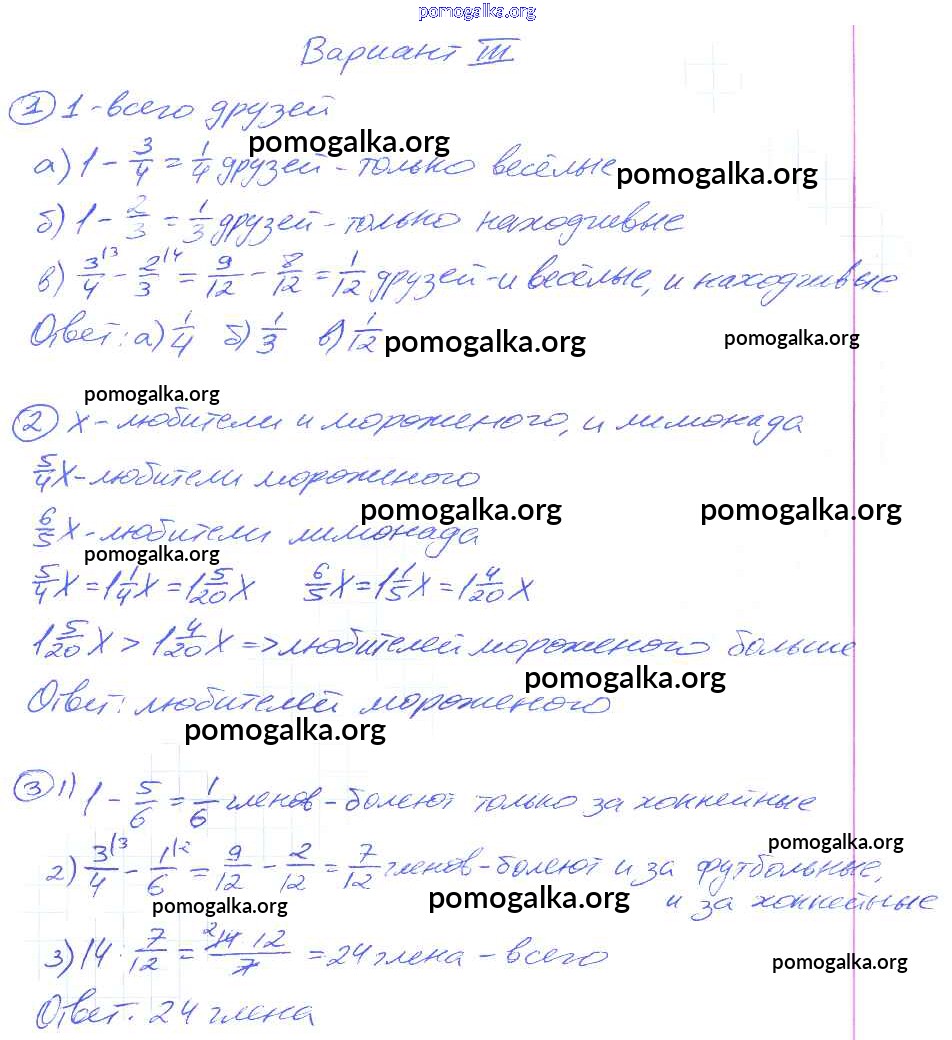 pomogalka.org
Вариант III
① 1 - всего друзей
pomogalka.org
а) 1 - 3/4 = 1/4 друзей - только весёлые
pomogalka.org
б) 1 - 2/3 = 1/3 друзей - только находчивые
в) 3/4 |3 - 2/3 |4 = 9/12 - 8/12 = 1/12 друзей - и весёлые, и находчивые
Ответ: а) 1/4 б) 1/3 в) 1/12
pomogalka.org pomogalka.org
pomogalka.org
② x - любители и мороженого, и лимонада
5/4 x - любители мороженого
pomogalka.org pomogalka.org
6/5 x - любители лимонада
pomogalka.org
5/4 x = 1 1/4 x = 1 5/20 x 6/5 x = 1 1/5 x = 1 4/20 x
1 5/20 x > 1 4/20 x => любителей мороженого больше
pomogalka.org
Ответ: любителей мороженого
pomogalka.org
③ 1) 1 - 5/6 = 1/6 членов - болеют только за хоккейные
pomogalka.org
2) 3/4 |3 - 1/6 |2 = 9/12 - 2/12 = 7/12 членов - болеют и за футбольные,
и за хоккейные
pomogalka.org pomogalka.org
3) 14 : 7/12 = 2 14 · 12/7 = 24 члена - всего
pomogalka.org
Ответ: 24 члена